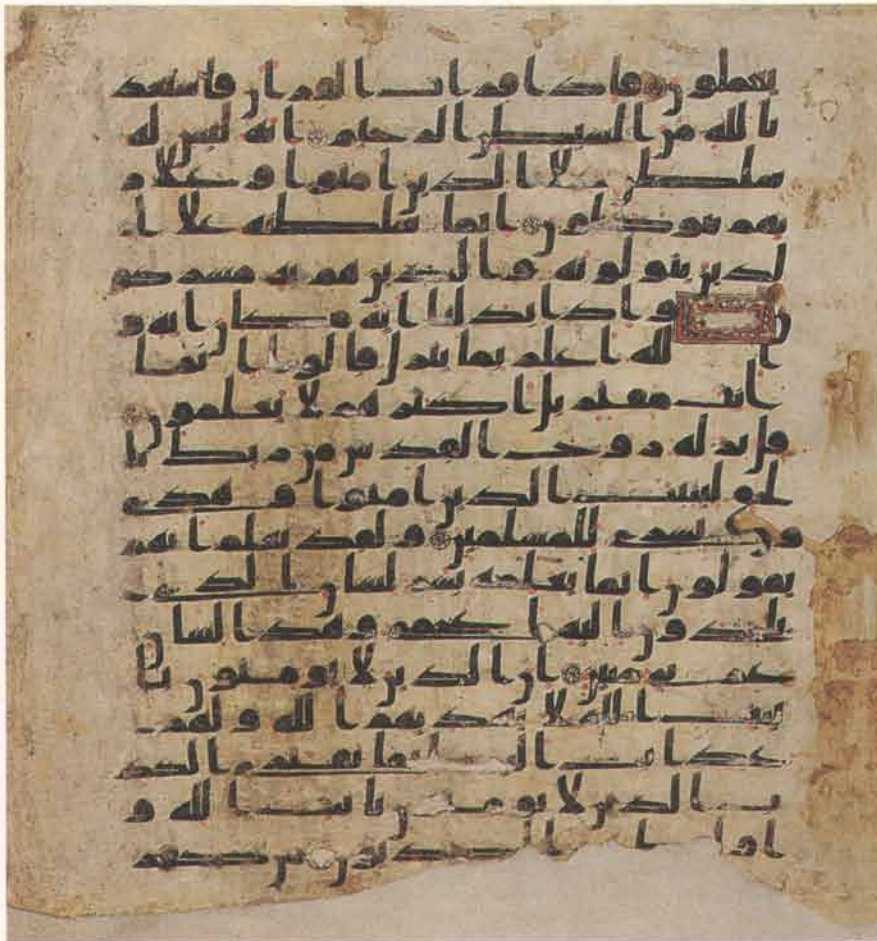 يعملون فاذا قرات القران فاستعذ
بالله من الشيطن الرجيم انه ليس له
سلطن علا الذين امنوا وعلا ر
بهم يتوكلون انما سلطنه علا ا
لذين يتولونه والذين هم به مشركو
ن واذا بدلنا اية مكان اية و
ا لله اعلم بما ينزل قالوا انما
انت مفتر بل اكثرهم لا يعلمون
قل نزله روح القدس من ربك با
لحق ليثبت الذين امنوا وهدى
وبشرى للمسلمين ولقد نعلم انهم
يقولون انما يعلمه بشر لسان الذي
يلحدون اليه اعجمي وهذا لسان
عربي مبين ان الذين لا يومنون با
ييت الله لا يهديهم الله ولهم
عذاب اليم انما يفتري الكذ
ب الذين لا يومنون باييت الله و
الكذبون من كفر